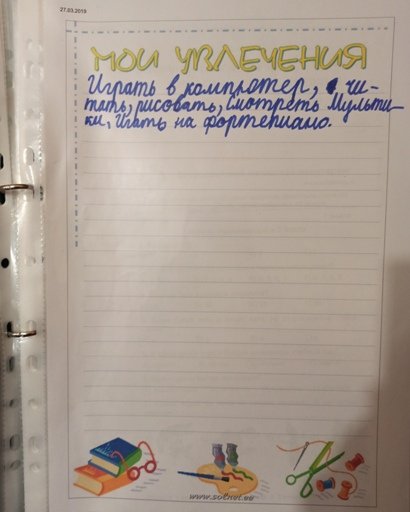 27.03.2019
МОИ УВЛЕЧЕНИЯ
Играть в компютер, чи-
тать, рисовать, смотреть Мульти-
ки, Играть на фортепиано.
www.solnet.ee